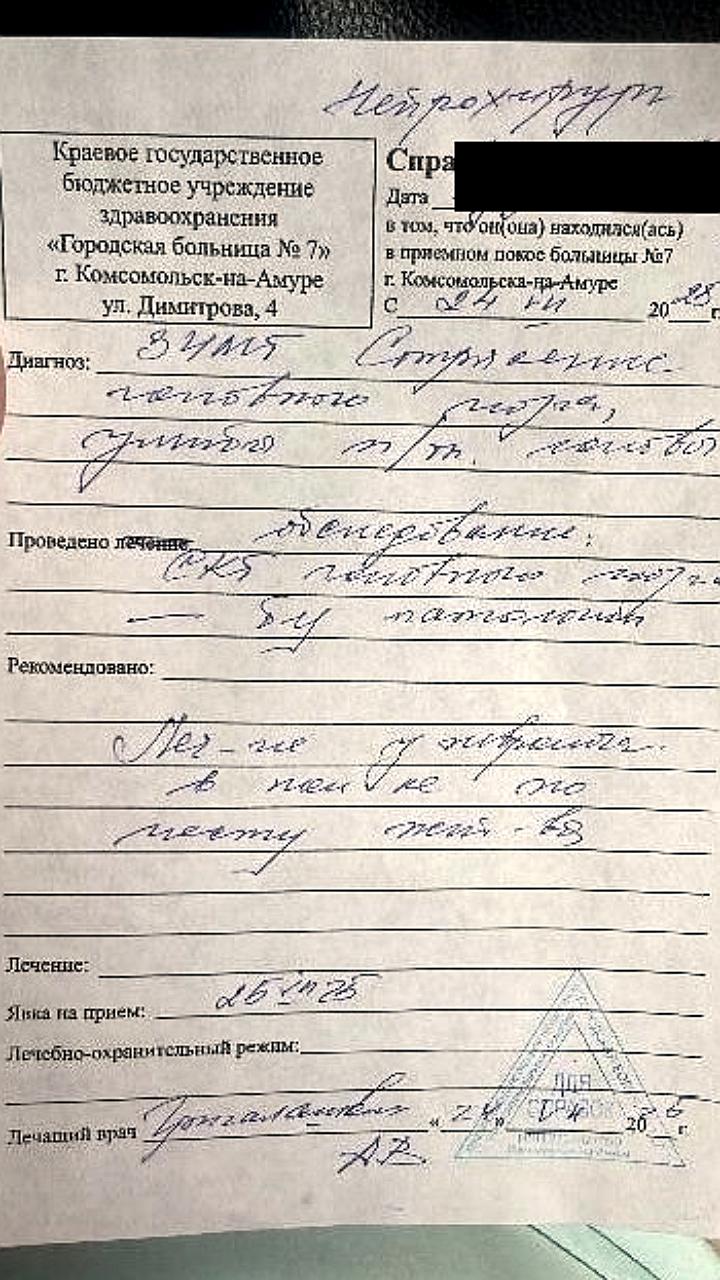 Нейрохирург
Краевое государственное
бюджетное учреждение
здравоохранения
«Городская больница № 7»
г. Комсомольск-на-Амуре
ул. Димитрова, 4
Спра
Дата
в том, что он(она) находился(ась)
в приемном покое больницы №7
г. Комсомольска-на-Амуре
С 24 20 25 г.
Диагноз: ЗЧМТ Сотрясение
головного мозга,
ушиб п/т. головы
Проведено лечение обследование:
СКТ головного мозга
— б/у патологии
Рекомендовано:
Леч-ие у невролога
в пол-ке по
месту жит-ва
Лечение:
Явка на прием: 25 25
Лечебно-охранительный режим:
Лечащий врач « 24 » 20 г.
А.В.
ДЛЯ
СПРАВОК